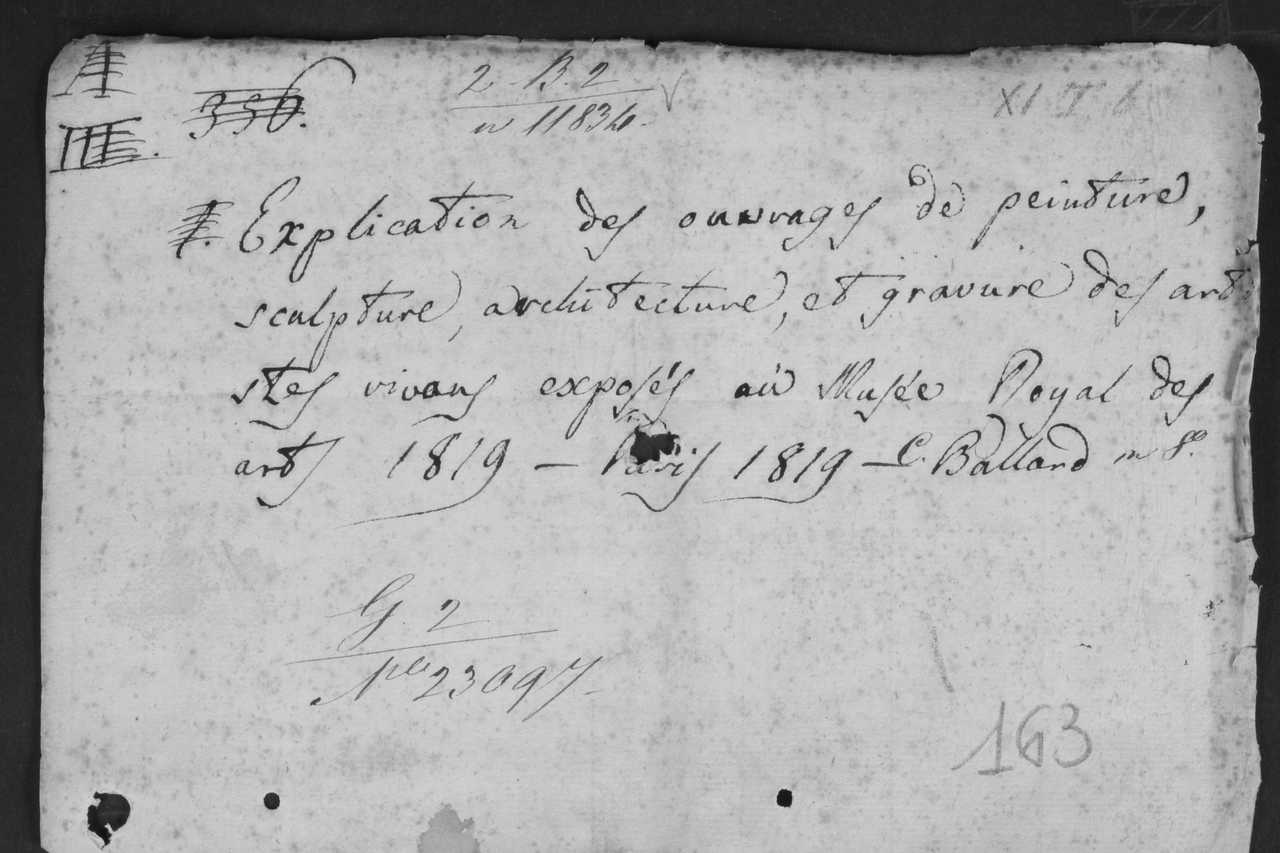 I
III.
356.
2 B. 2
n 11834
XI. II. 6
I. Explication des ouvrages de peinture,
sculpture, architecture, et gravure des arti
stes vivans exposés au Musée Royal des
arts 1819 — Paris 1819 — C. Ballard in 8º.
G. 2
Nº 23097
163